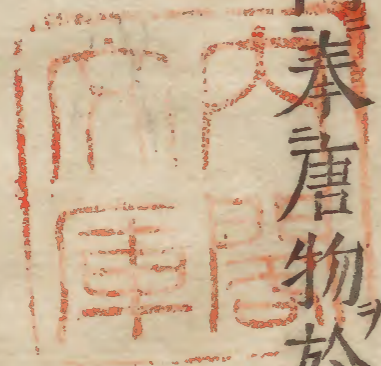 奉唐物ヲ於
内閣文庫